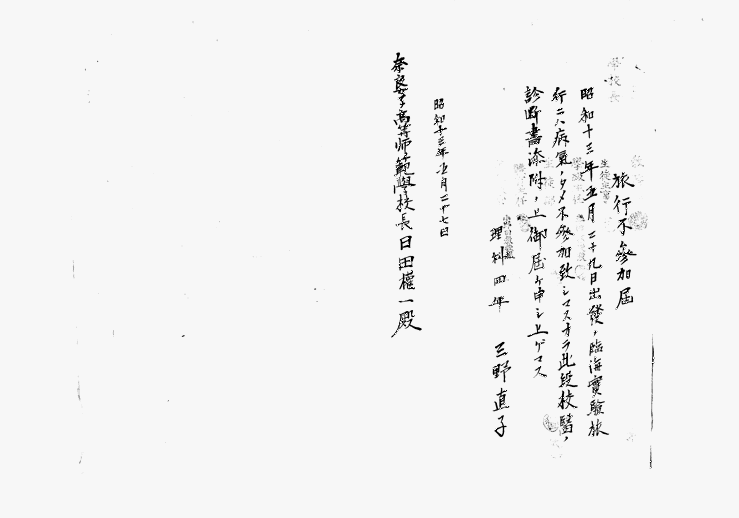 旅行不參加屆
昭和十三年五月二十九日出發ノ臨海實驗旅
行ニハ病氣ノタメ不參加致シマスカラ此段校醫ノ
診斷書添附ノ上御屆ケ申シ上ゲマス
理科四年 三野直子
昭和十三年五月二十七日
奈良女子高等師範學校長日田權一殿
學校長
生徒主事